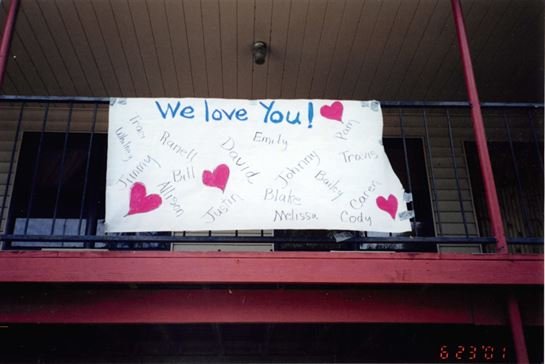 We love You!
Traci
Whitney
Jimmy
Ranell
Bill
Allison
David
Justin
Emily
Johnny
Blake
Melissa
Bailey
Pam
Travis
Caren
Cody
6 23 '01